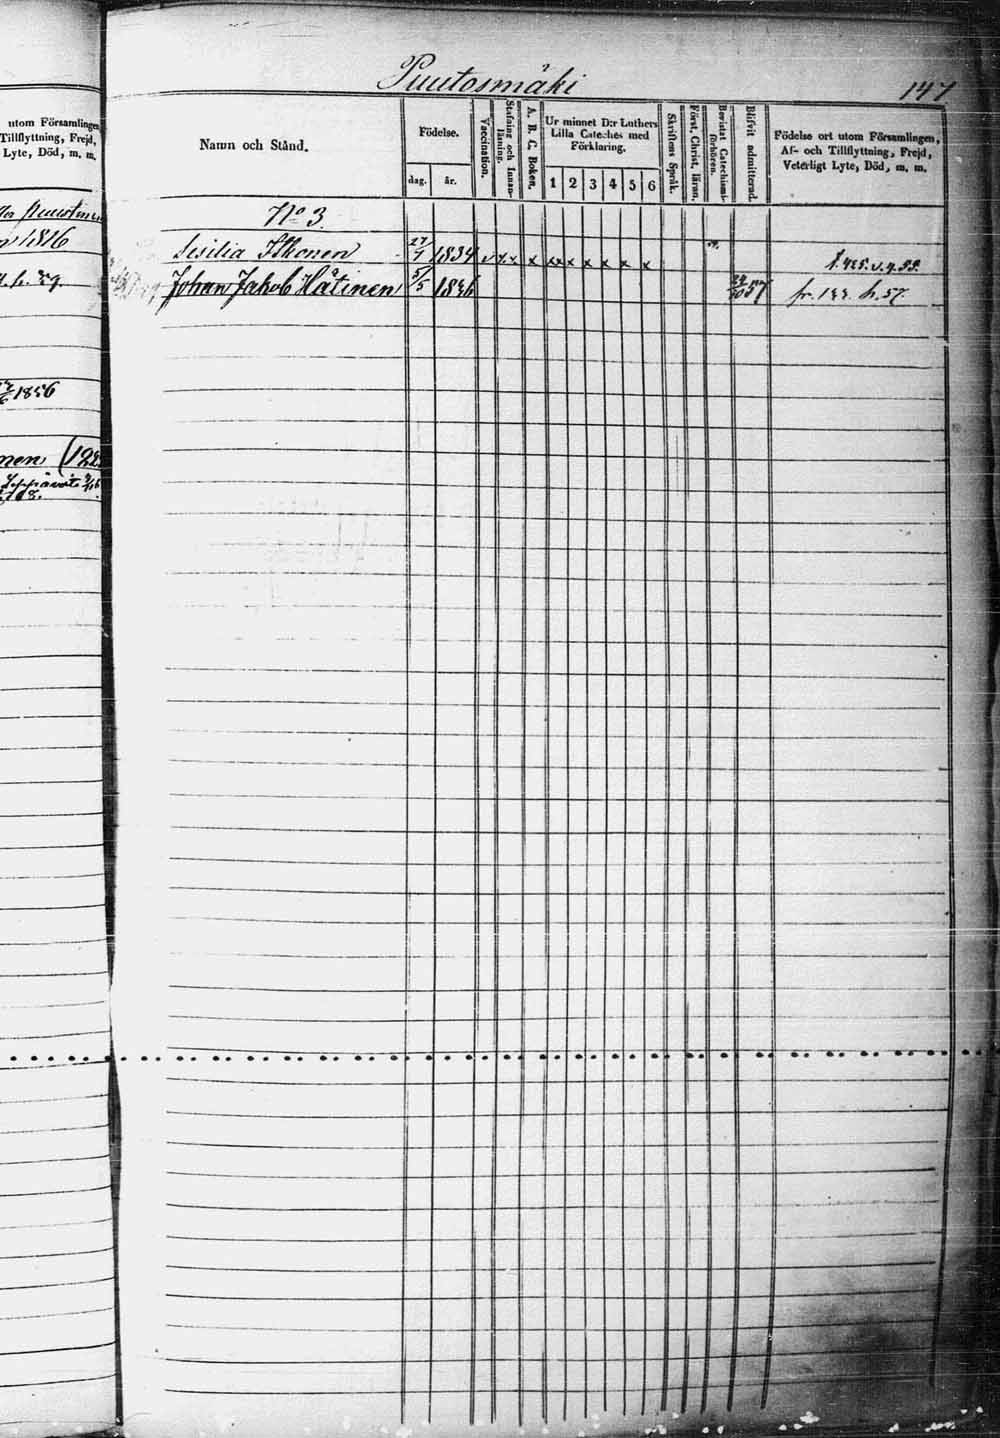 Puutosmäki
147
utom Församlingen,
Tillflyttning, Frejd,
Lyte, Död, m. m.
1816
1856
nen (122
Namn och Stånd.
Födelse.
dag.
år.
Vaccination.
Stafning och Innanläsning.
A. B. C. Boken.
Ur minnet D:r Luthers
Lilla Cateches med
Förklaring.
1 2 3 4 5 6
Skriftens Språk.
Först. Christ. läran.
Bevistat Catechismiförhören.
Blifvit admitterad.
Födelse ort utom Församlingen,
Af- och Tillflyttning, Frejd,
Veterligt Lyte, Död, m. m.
No 3.
Sesilia Itkonen 27/7 1834 v x x x xx x x x x x f. 425. v. 4. 55.
Johan Jakob Hätinen 5/5 1836 24/10 57 fr. 122. h. 57.